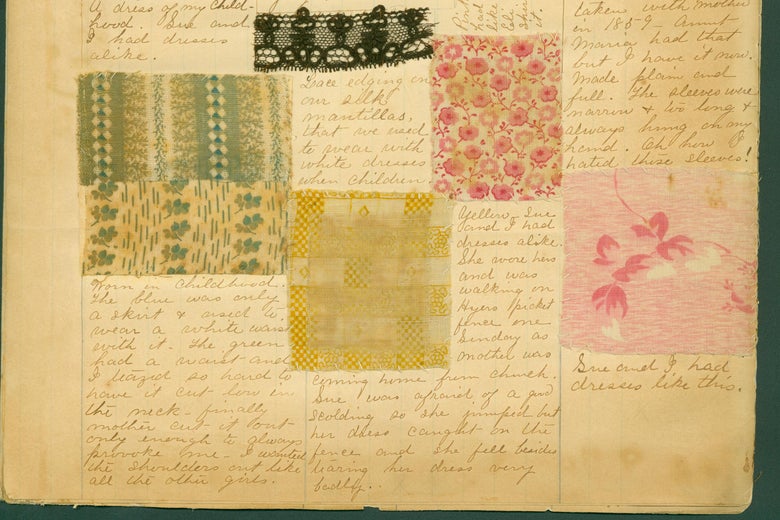 A dress of my Child-
hood. Sue and
I had dresses
alike.
Worn in Childhood.
The blue was only
a skirt & used to
wear a white waist
with it. The green
had a waist and
I teazed so hard to
have it cut low in
the neck - finally
mother cut it out
only enough to always
provoke me - I wanted
the shoulders cut like
all the other girls.
Lace edging on
our silk
mantillas,
that we used
to wear with
white dresses
when children.
had
it.
Yellow - Sue
and I had
dresses alike.
She wore hers
and was
walking on
Hyers picket
fence one
Sunday as
mother was
coming home from church.
Sue was afraid of a good
scolding so she jumped but
her dress caught on the
fence and she fell besides
tearing her dress very
badly..
taken with mother
in 1859 - Aunt
Maria had that
but I have it now.
Made plain and
full. The sleeves were
narrow & too long &
always hung on my
hand. Oh how I
hated those sleeves!
Sue and I had
dresses like this.